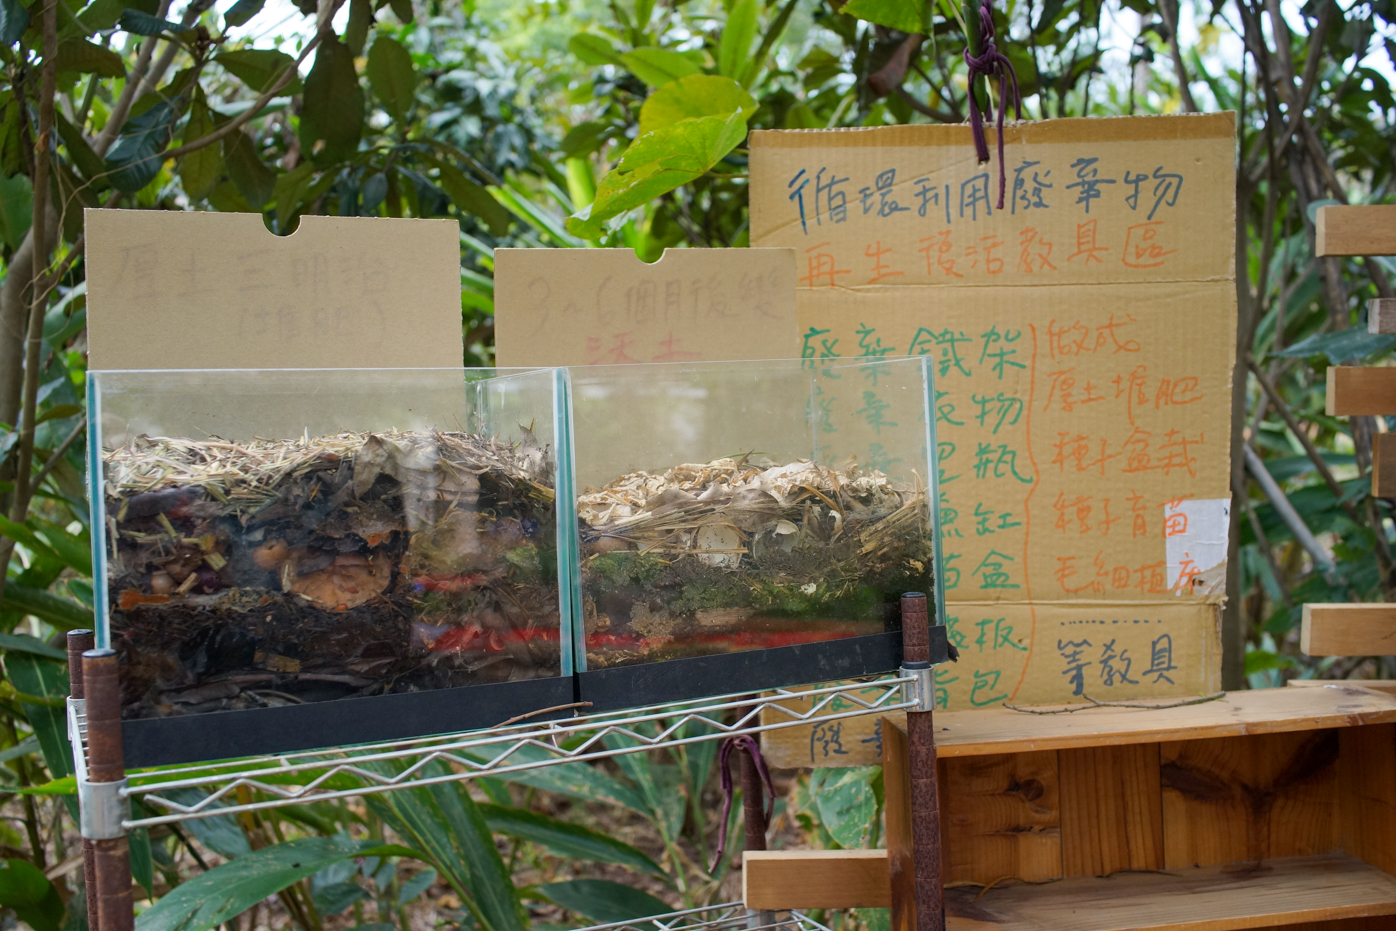 厚土三明治
(堆肥)
3~6個月後變
沃土
循環利用廢棄物
再生復活教具區
廢棄鐵架
衣物
瓶
魚缸
盒
板
包
廢
做成
厚土堆肥
種子盆栽
種子育苗
毛細植床
等教具